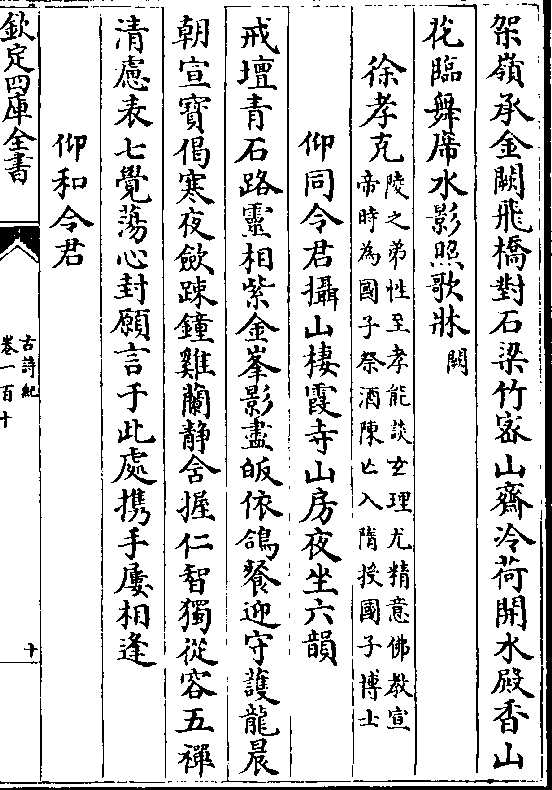 架嶺承金闕飛橋對石梁竹宻山齋冷荷開水殿香山
花臨舞席水影照歌牀闕
徐孝克陵之弟性至孝能談玄理尤精意佛教宣
帝時為國子祭酒陳亡入隋授國子博士
仰同令君攝山棲霞寺山房夜坐六韻
戒壇青石路靈相紫金峯影盡皈依鴿餐迎守護龍晨
朝宣寶偈寒夜斂踈鐘雞蘭静含握仁智獨從容五禪
清慮表七覺蕩心封願言于此處携手屢相逢
仰和令君
欽定四庫全書
古詩紀
卷一百十
十